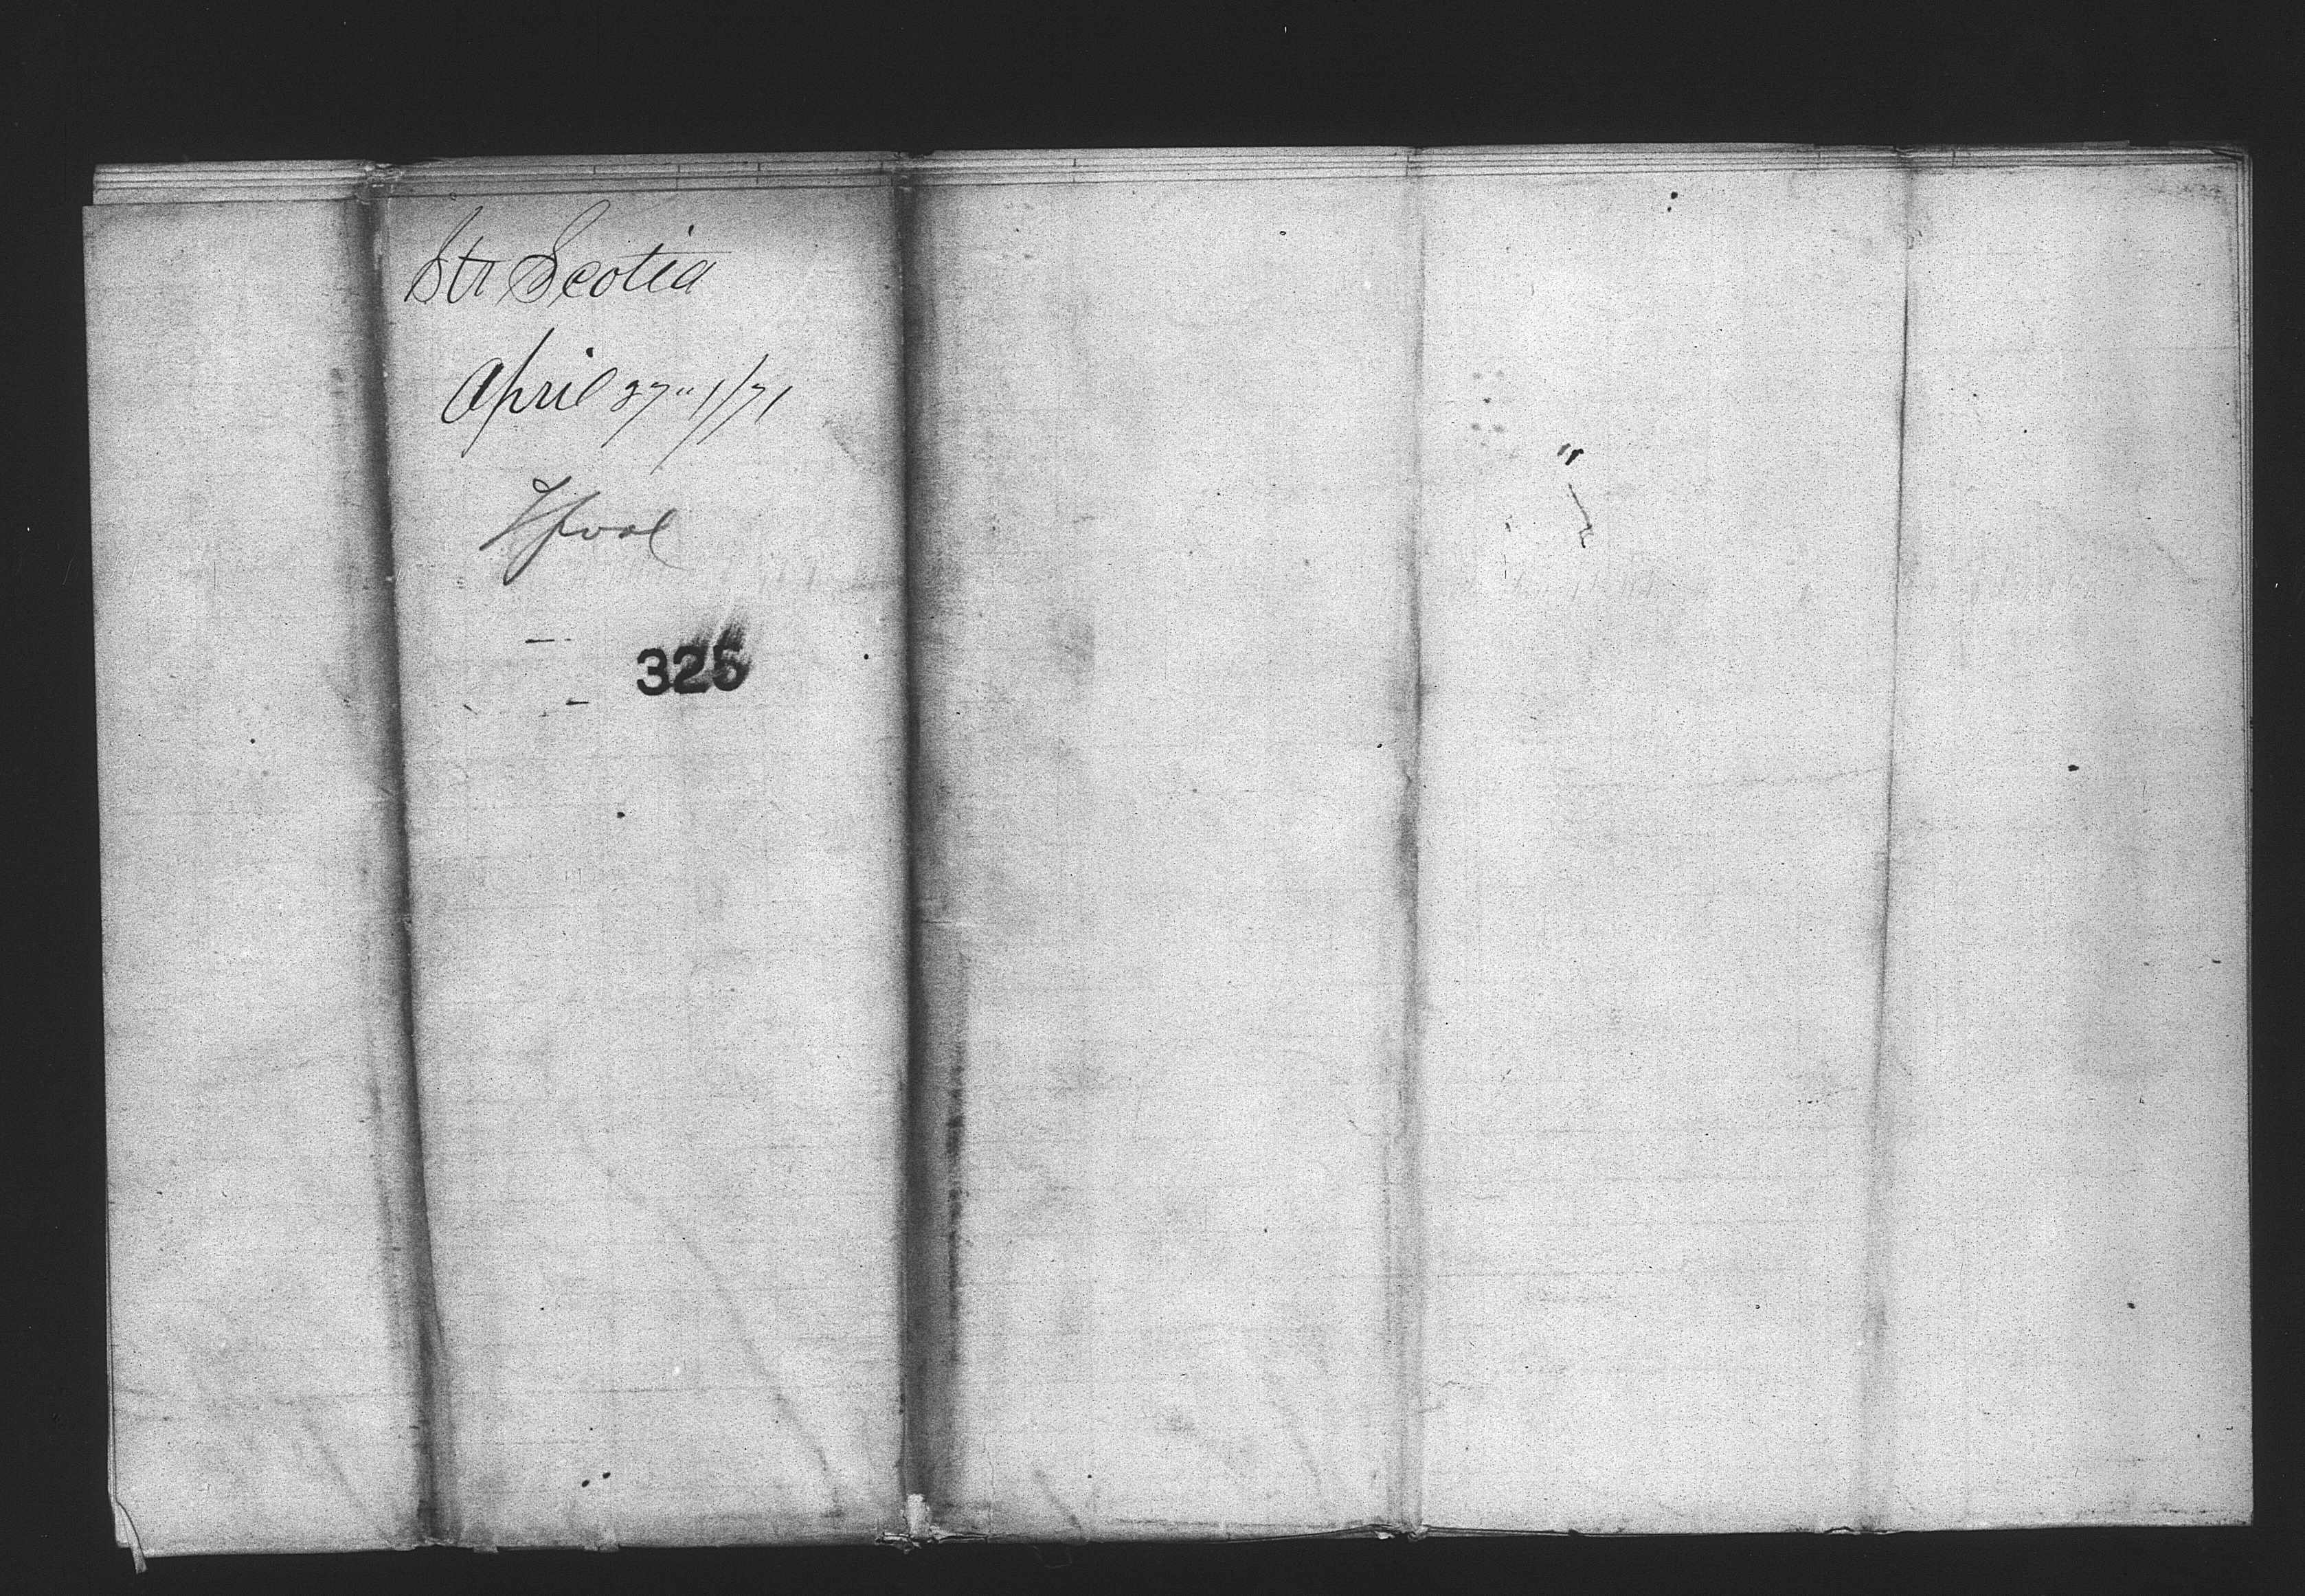 Str Scotia
April 27" 1/71
L'pool
325